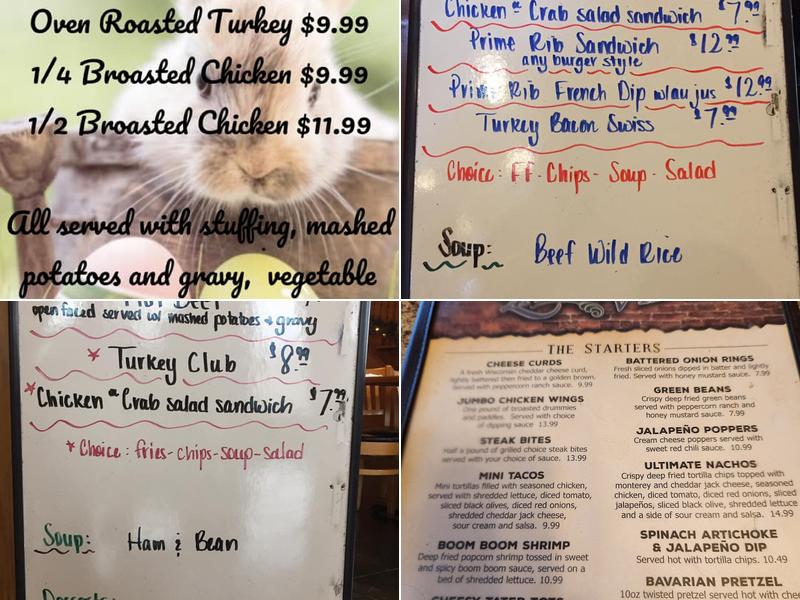 Oven Roasted Turkey $9.99
1/4 Broasted Chicken $9.99
1/2 Broasted Chicken $11.99
All served with stuffing, mashed
potatoes and gravy, vegetable
Chicken or Crab salad sandwich $7.99
Prime Rib Sandwich $12.99
any burger style
Prime Rib French Dip w/au jus $12.99
Turkey Bacon Swiss $7.99
Choice: FF - Chips - Soup - Salad
Soup: Beef Wild Rice
open faced served w/ mashed potatoes + gravy
* Turkey Club $8.99
* Chicken or Crab salad sandwich $7.99
* Choice: fries-chips-soup-salad
Soup: Ham & Bean
THE STARTERS
CHEESE CURDS
A fresh Wisconsin cheddar cheese curd,
lightly battered then fried to a golden brown.
Served with peppercorn ranch sauce. 9.99
JUMBO CHICKEN WINGS
One pound of broasted drummies
and paddles. Served with choice
of dipping sauce 13.99
STEAK BITES
Half a pound of grilled choice steak bites
served with your choice of sauce. 13.99
MINI TACOS
Mini tortillas filled with seasoned chicken,
served with shredded lettuce, diced tomato,
sliced black olives, diced red onions,
shredded cheddar jack cheese,
sour cream and salsa. 9.99
BOOM BOOM SHRIMP
Deep fried popcorn shrimp tossed in sweet
and spicy boom boom sauce, served on a
bed of shredded lettuce. 10.99
CHEESY TATER TOTS
BATTERED ONION RINGS
Fresh sliced onions dipped in batter and lightly
fried. Served with honey mustard sauce. 7.99
GREEN BEANS
Crispy deep fried green beans
served with peppercorn ranch and
honey mustard sauce. 7.99
JALAPEÑO POPPERS
Cream cheese poppers served with
sweet red chili sauce. 10.99
ULTIMATE NACHOS
Crispy deep fried tortilla chips topped with
monterey and cheddar jack cheese, seasoned
chicken, diced tomato, diced red onions, sliced
jalapeños, sliced black olives, shredded lettuce
and a side of sour cream and salsa. 14.99
SPINACH ARTICHOKE
& JALAPEÑO DIP
Served hot with tortilla chips. 10.49
BAVARIAN PRETZEL
10oz twisted pretzel served hot with